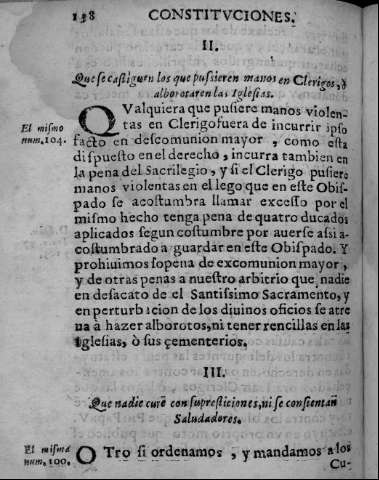 138 CONSTITVCIONES.
II.
Que se castiguen los que pusieren manos en Clerigos, ò
alborotaren las Iglesias.
El mismo
num. 104.
QValquiera que pusiere manos violen-
tas en Clerigo fuera de incurrir ipso
facto en descomunion mayor, como està
dispuesto en el derecho, incurra tambien en
la pena del Sacrilegio, y si el Clerigo pusiere
manos violentas en el lego que en este Obis-
pado se acostumbra llamar excesso por el
mismo hecho tenga pena de quatro ducados
aplicados segun costumbre por auerse assi a-
costumbrado a guardar en este Obispado. Y
prohiuimos sopena de excomunion mayor,
y de otras penas a nuestro arbitrio que nadie
en desacato de el Santissimo Sacramento, y
en perturbacion de los diuinos oficios se atre
ua à hazer alborotos, ni tener rencillas en las
Iglesias, ò sus çementerios.
III.
Que nadie cure con supresticiones, ni se consientan
Saludadores.
El mismo
num. 100.
OTro si ordenamos, y mandamos a los
Cu-